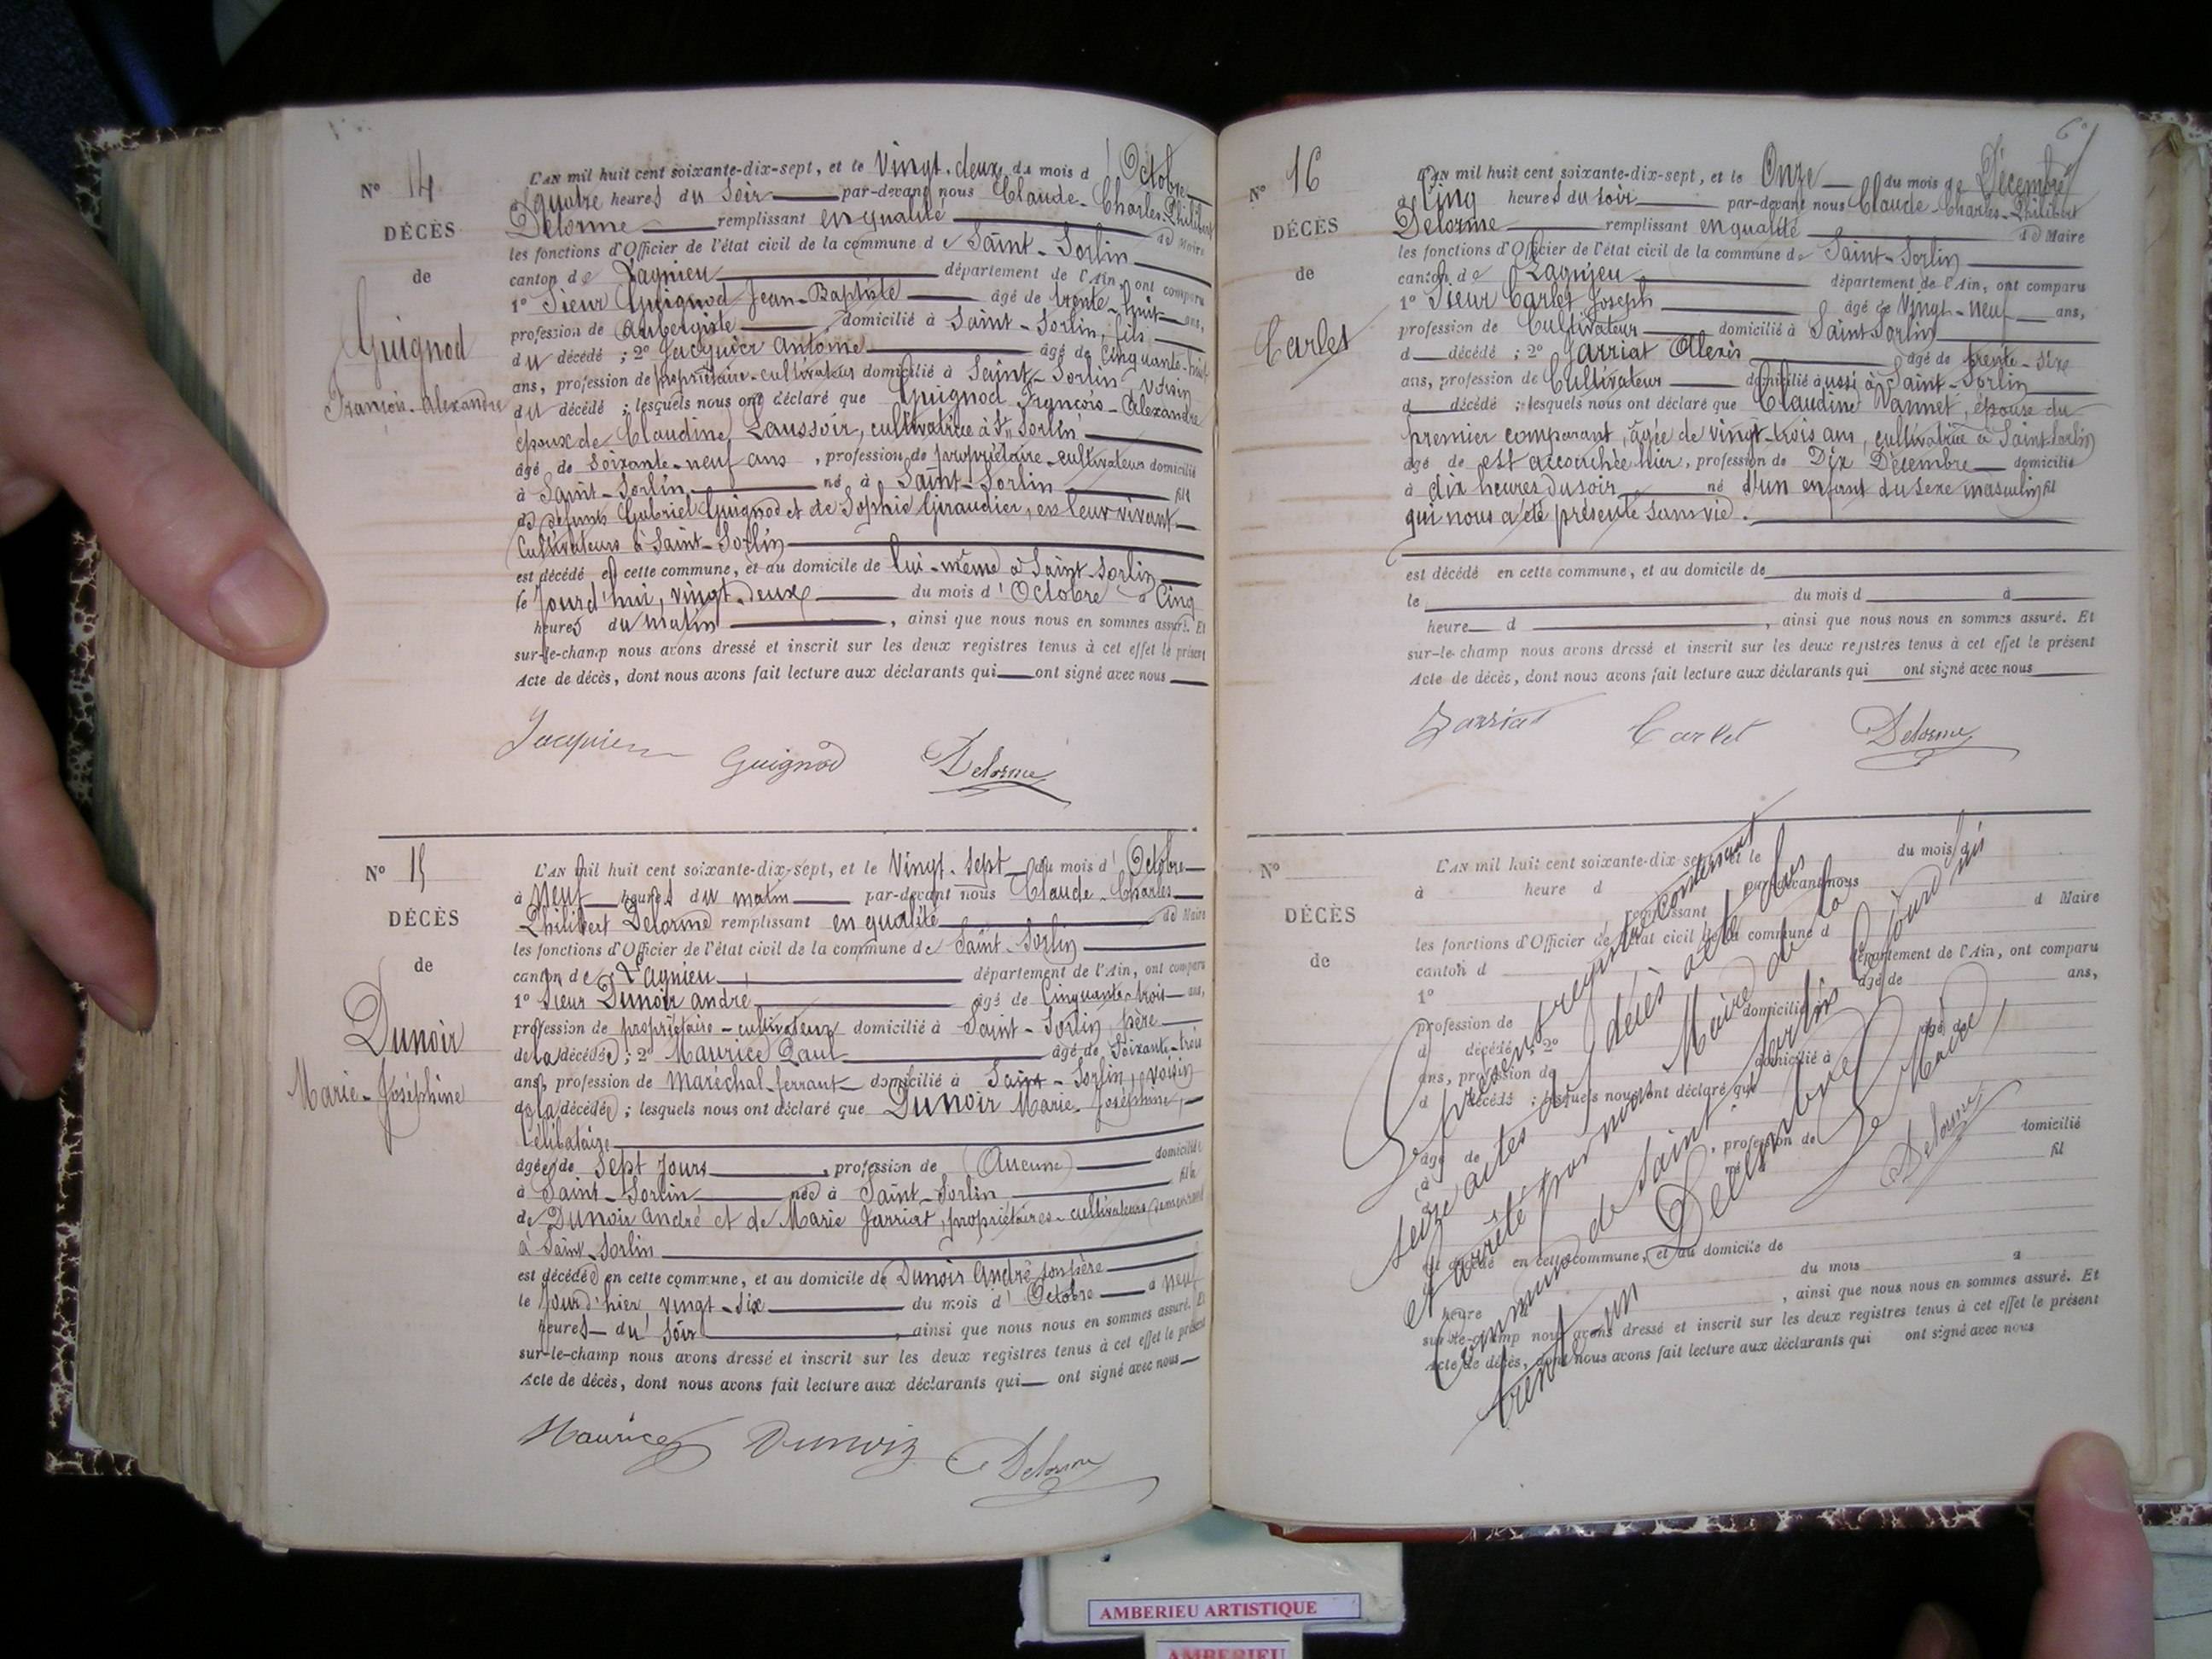 N° 14
DÉCÈS
de
Guignod
François-Alexandre
L'AN mil huit cent soixante-dix-sept, et le Vingt-deux du mois d'Octobre
à quatre heures du soir par-devant nous Claude-Charles-Philibert
Delorme remplissant en qualité de Maire
les fonctions d'Officier de l'état civil de la commune de Saint-Sorlin
canton de Lagnieu département de l'Ain, ont comparu
1° Sieur Guignod Jean-Baptiste âgé de trente-huit ans,
profession de Aubergiste, domicilié à Saint-Sorlin, fils
du décédé ; 2° Jacquier Antoine âgé de Cinquante-huit
ans, profession de propriétaire-cultivateur domicilié à Saint-Sorlin Voisin
du décédé ; lesquels nous ont déclaré que Guignod François-Alexandre
époux de Claudine Laussoir, cultivatrice à St Sorlin
âgé de soixante-neuf ans, profession de propriétaire-cultivateur domicilié
à Saint-Sorlin né à Saint-Sorlin fils
de défunts Gabriel Guignod et de Sophie Giraudier, en leur vivant
Cultivateurs à Saint-Sorlin
est décédé en cette commune, et au domicile de lui-même à Saint-Sorlin
le Jourd'hui, vingt-deux du mois d'Octobre à Cinq
heures du matin, ainsi que nous nous en sommes assuré. Et
sur-le-champ nous avons dressé et inscrit sur les deux registres tenus à cet effet le présent
Acte de décès, dont nous avons fait lecture aux déclarants qui ont signé avec nous
Jacquier Guignod Delorme
N° 15
DÉCÈS
de
Dunoir
Marie-Joséphine
L'AN mil huit cent soixante-dix-sept, et le Vingt-sept du mois d'Octobre
à Neuf heures du matin par-devant nous Claude-Charles
Philibert Delorme remplissant en qualité de Maire
les fonctions d'Officier de l'état civil de la commune de Saint-Sorlin
canton de Lagnieu département de l'Ain, ont comparu
1° Sieur Dunoir André âgé de Cinquante-trois ans,
profession de propriétaire-cultivateur domicilié à Saint-Sorlin, père
de la décédée ; 2° Maurice Paul âgé de Soixante-trois
ans, profession de maréchal-ferrant domicilié à Saint-Sorlin, voisin
de la décédée ; lesquels nous ont déclaré que Dunoir Marie-Joséphine,
Célibataire
âgée de Sept Jours, profession de (Aucune) domiciliée
à Saint-Sorlin née à Saint-Sorlin fille
de Dunoir André et de Marie Jarriat, propriétaires-cultivateurs demeurant
à Saint-Sorlin
est décédée en cette commune, et au domicile de Dunoir André son père
le Jourd'hier, vingt-six du mois d'Octobre à neuf
heures du soir, ainsi que nous nous en sommes assuré. Et
sur-le-champ nous avons dressé et inscrit sur les deux registres tenus à cet effet le présent
Acte de décès, dont nous avons fait lecture aux déclarants qui ont signé avec nous
Maurice Dunoir Delorme
N° 16
DÉCÈS
de
Carlet
L'AN mil huit cent soixante-dix-sept, et le Onze du mois de Décembre
à Cinq heures du soir par-devant nous Claude-Charles-Philibert
Delorme remplissant en qualité de Maire
les fonctions d'Officier de l'état civil de la commune de Saint-Sorlin
canton de Lagnieu département de l'Ain, ont comparu
1° Sieur Carlet Joseph âgé de Vingt-Neuf ans,
profession de Cultivateur domicilié à Saint Sorlin
d décédé ; 2° Jarriat Alexis âgé de trente-six
ans, profession de Cultivateur domicilié aussi à Saint-Sorlin
d décédé ; lesquels nous ont déclaré que Claudine Vannet, épouse du
premier comparant, âgée de vingt-trois ans, cultivatrice à Saint Sorlin
âgé de est accouchée hier, profession de Dix Décembre domicilié
à dix heures du soir né d'un enfant du sexe masculin fil
qui nous a été présenté sans vie.
est décédé en cette commune, et au domicile de
le du mois d à
heure d, ainsi que nous nous en sommes assuré. Et
sur-le-champ nous avons dressé et inscrit sur les deux registres tenus à cet effet le présent
Acte de décès, dont nous avons fait lecture aux déclarants qui ont signé avec nous
Jarriat Carlet Delorme
N°
DÉCÈS
de
L'AN mil huit cent soixante-dix sept et le du mois d
à heure d par-devant nous
remplissant d Maire
les fonctions d'Officier de l'état civil de la commune d
canton d département de l'Ain, ont comparu
1° âgé de ans,
profession de domicilié à
d décédé ; 2° âgé de
ans, profession de domicilié à
d décédé ; lesquels nous ont déclaré que
âgé de, profession de domicilié
à né fil
est décédé en cette commune, et au domicile de
du mois à
heure, ainsi que nous nous en sommes assuré. Et
sur-le-champ nous avons dressé et inscrit sur les deux registres tenus à cet effet le présent
Acte de décès, dont nous avons fait lecture aux déclarants qui ont signé avec nous
Le présent registre contenant
seize actes de décès a été clos
et arrêté par nous Maire de la
Commune de Saint Sorlin Cejourd'hui
trente un Décembre
Le Maire,
Delorme
AMBERIEU ARTISTIQUE
AMBERIEU